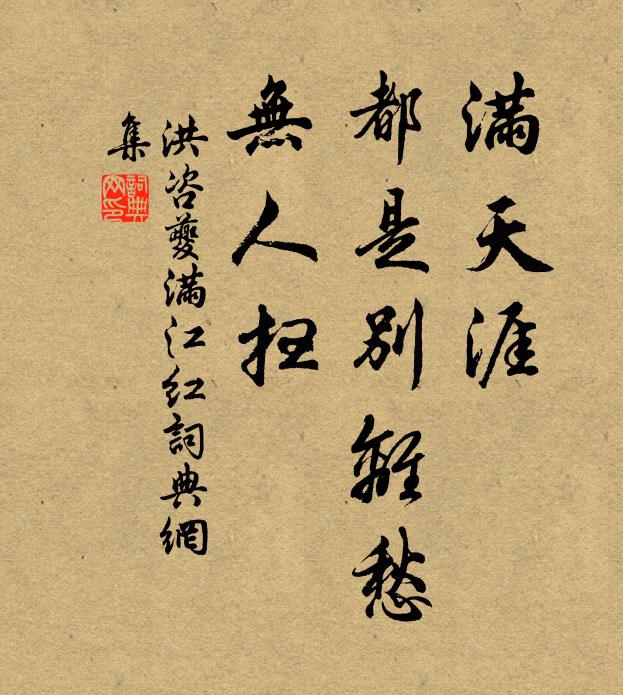 滿天涯
都是別離愁
無人扫
洪咨夔滿江红詞典網
集
詞典
网印